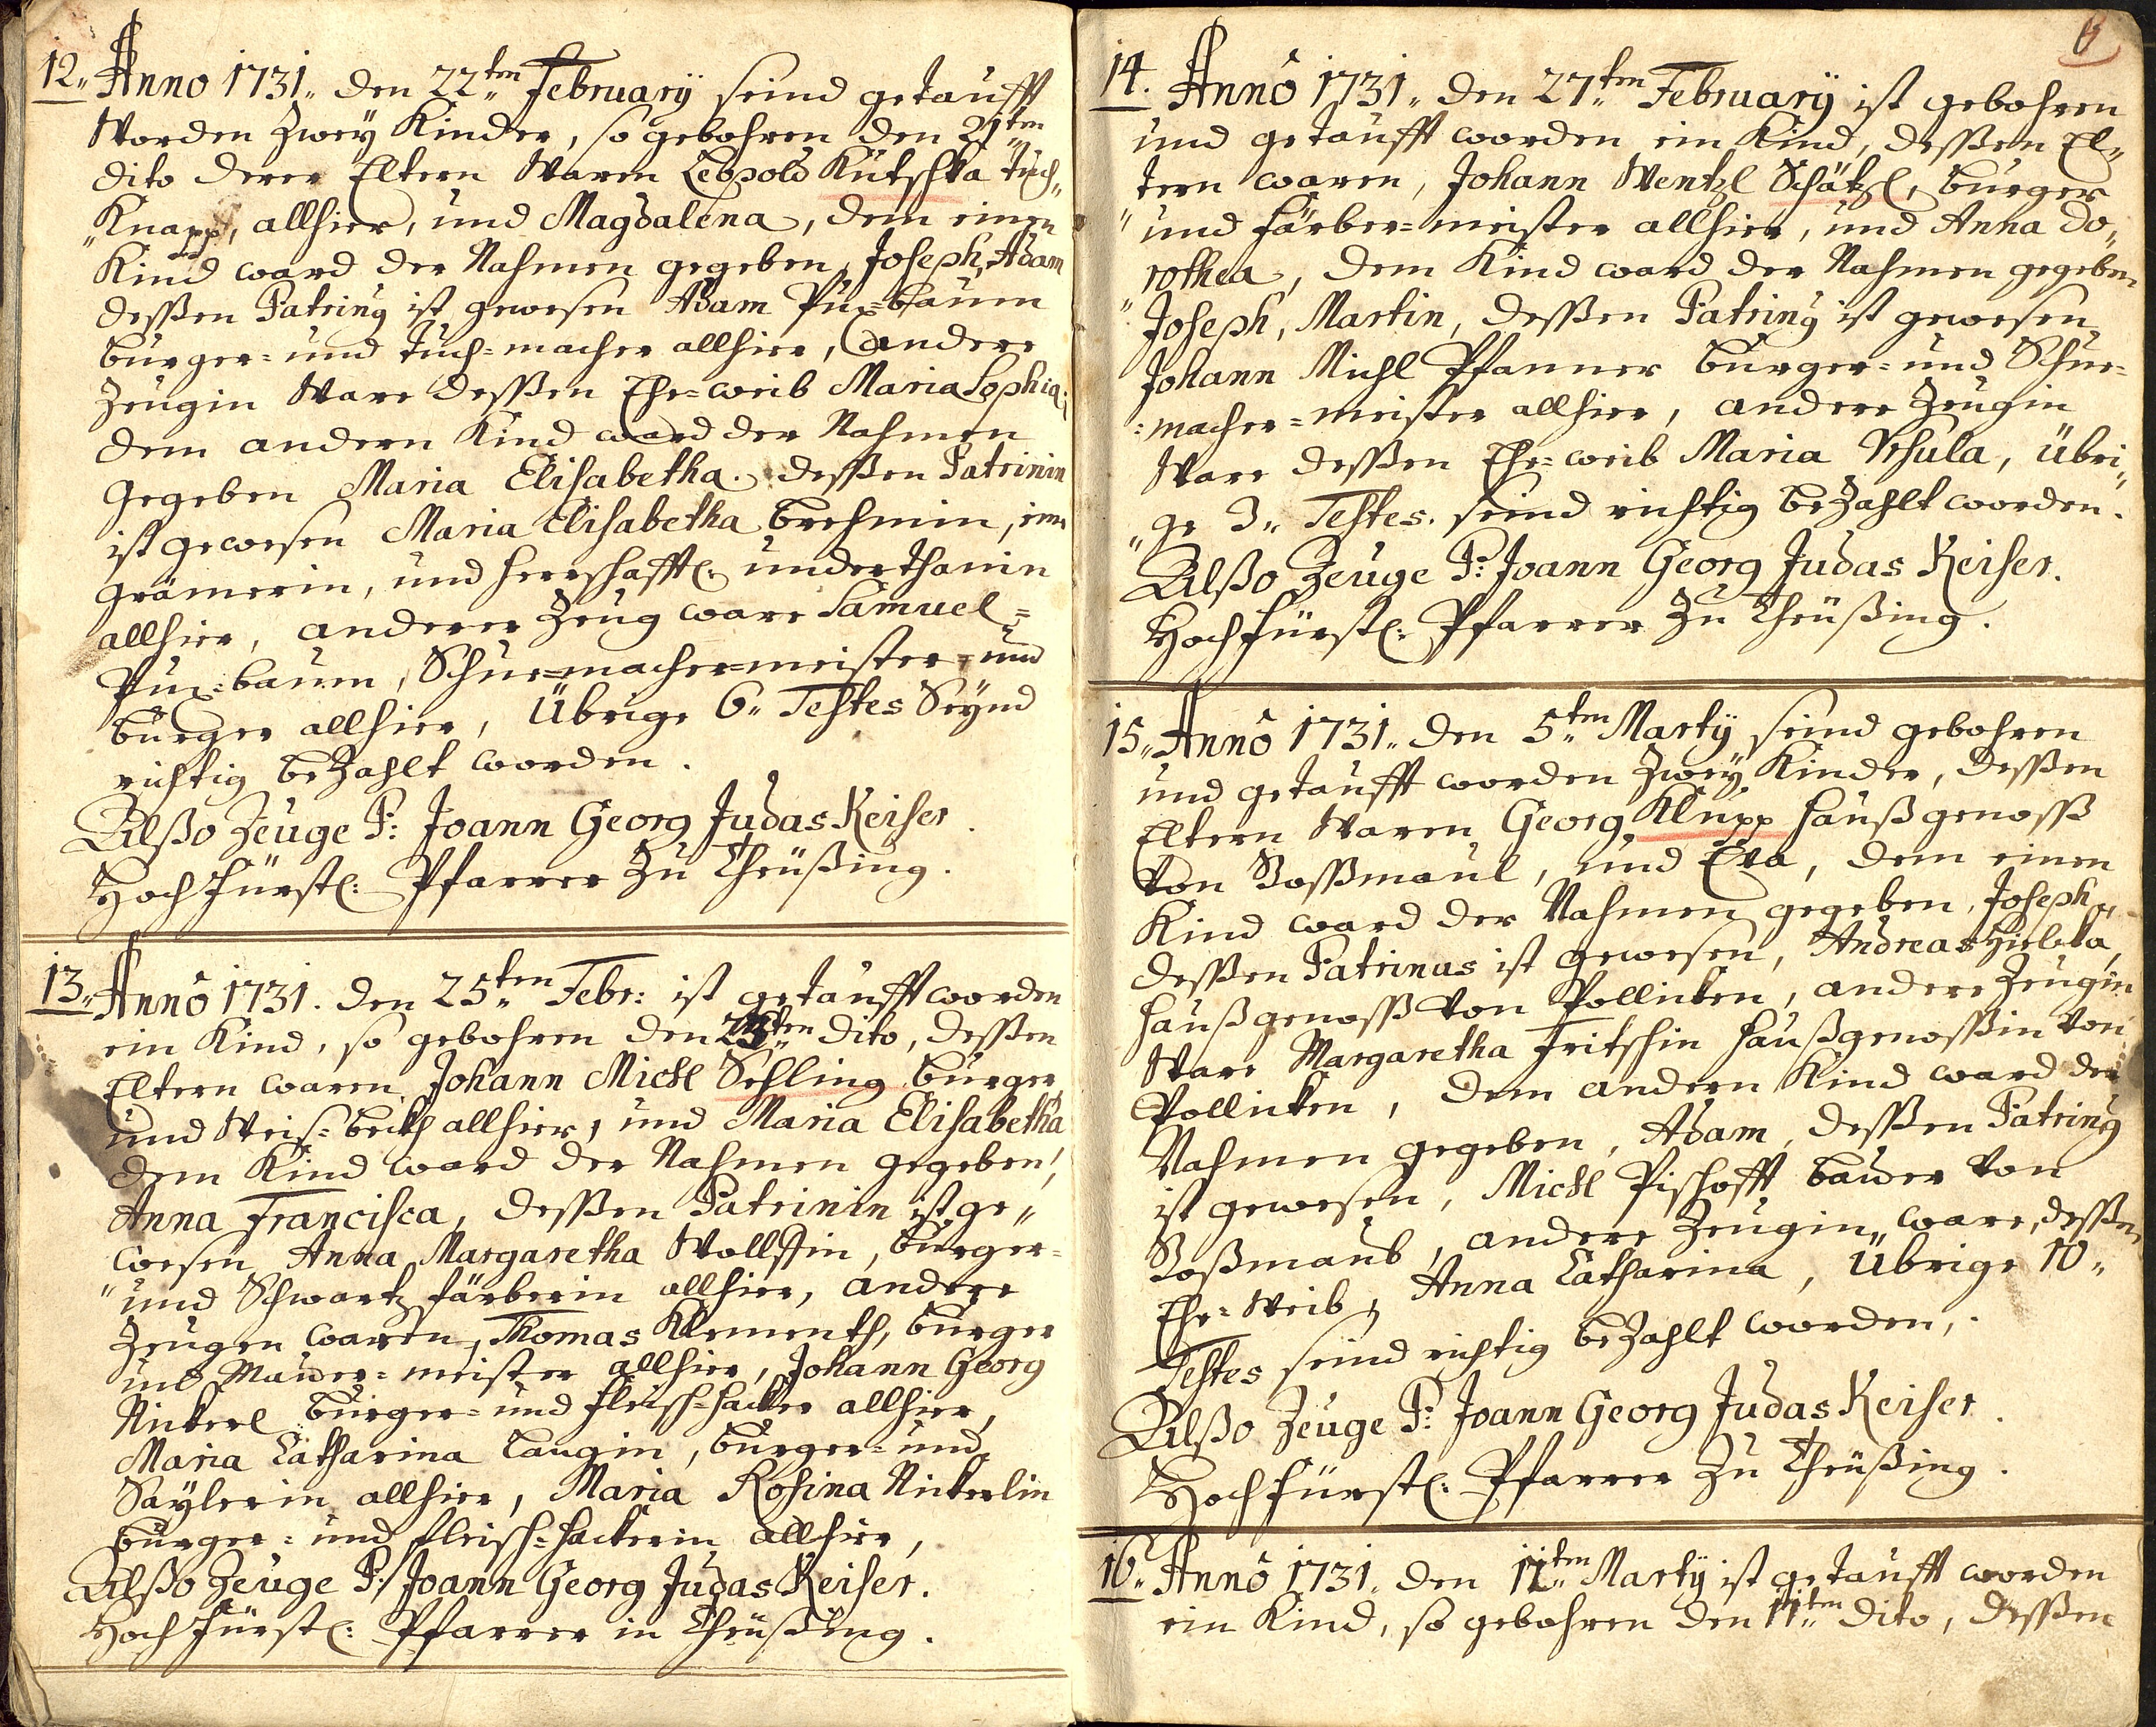 12. Anno 1731. den 22ten February seind getaufft
worden Zwey Kinder, so gebohren den 21ten
dito derer Eltern Waren Leopold Kutschka tuch„
„Knapp, allhier, und Magdalena, dem einen
Kind ward der Nahmen gegeben, Joseph, Adam
deßen Patrinq ist gewesen Adam Pux=baum
burger= und tuch=macher allhier, andere
Zeugin Ware deßen Ehe=weib Maria Sophia,
dem andern Kind ward der Nahmen
gegeben Maria Elisabetha. deßen Patrinin
ist gewesen Maria Elisabetha Brehmin,
Grämerin, und herrschafftl: underthanin
allhier, anderer Zeug ware Samuel=
Pux=baum, Schue=macher=meister= und
burger allhier, Übrige 6„ Testes Seynd
richtig beZahlt worden.
Alßo Zeuge P: Joann Georg Judas Keiser.
Hochfürstl: Pfarrer Zu Theüßing.
13„ Anno 1731. den 25ten Febr: ist getaufft worden
ein Kind, so gebohren den dito, deßen
Eltern waren, Johann Michl Sehling burger
und Weis=beckh allhier, und Maria Elisabetha
dem Kind ward der Nahmen gegeben,
Anna Francisca, deßen Patrinin ist ge„
wesen Anna Margaretha Wollffin, burger=
„und Schwartz färberin allhier, andere
Zeugen waren, Thomas Klementh, burger
und Maurer=meister allhier, Johann Georg
Nickerl burger= und fleisch=hacker allhier,
Maria Catharina Langin, burger= und
Saylerin allhier, Maria Rosina Nickerlin
burger= und fleisch=hackerin allhier,
Alßo Zeuge P: Joann Georg Judas Keiser.
Hochfürstl: Pfarrer in Theüßing.
6
14. Anno 1731„ den 27ten February ist gebohren
und getaufft worden ein Kind, deßen El„
tern waren, Johann Wentzl Schätzl, burger
„und färber=meister allhier, und Anna Do„
„rothea, dem Kind ward der Nahmen gegeben
Joseph, Martin, deßen Patrinq ist gewesen
Johann Michl Pfanner burger= und Schue=
=macher=meister allhier, andere Zeugin
Ware deßen Ehe=weib Maria Vrsula, übri„
„ge 3„ Testes. seind richtig beZahlt worden.
Alßo Zeuge P: Joann Georg Judas Keiser.
Hochfürstl: Pfarrer Zu Theüßing.
15„ Anno 1731„ den 5ten Marty seind gebohren
und getaufft worden Zwey Kinder, deßen
Eltern Waren Georg Klupp haußgenoss
von Soßmaul, und Eva, dem einen
Kind ward der Nahmen gegeben, Joseph„
deßen Patrinus ist gewesen, Andreas
haußgenoss von Pollicken, andere Zeugin
Ware Margaretha Fritschin haußgenoßin von
Pollicken, dem andern Kind ward der
Nahmen gegeben, Adam, deßen Patrinq
ist gewesen, Michl Pischofft bauer von
Soßmaul, andere Zeugin, ware, deßen
Ehe=Weib, Anna Catharina, Übrige 10„
Testes seind richtig beZahlt worden,
Alßo Zeuge P: Joann Georg Judas Keiser.
Hochfürstl: Pfarrer Zu Theüßing.
16„ Anno 1731„ den Marty ist getaufft worden
ein Kind, so gebohren den 11ten dito, deßen